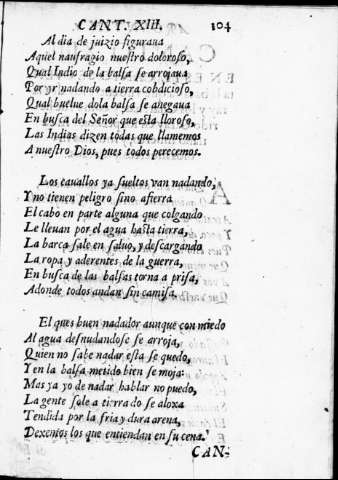 CANT. XIII. 104
Al dia de juizio figuraua
Aquel naufragio nuestro doloroso,
Qual Indio de la balsa se arrojaua
Por yr nadando a tierra cobdicioso,
Qual buelue do la balsa se anegaua
En busca del Señor que esta lloroso,
Las Indias dizen todas que llamemos
A nuestro Dios, pues todos perecemos.
Los cauallos ya sueltos van nadando,
Y no tienen peligro sino afierra
El cabo en parte alguna que colgando
Le lleuan por el agua hasta tierra,
La barca sale en saluo, y descargando
La ropa y aderentes de la guerra,
En busca de las balsas torna a prisa,
Adonde todos andan sin camisa.
El ques buen nadador aunque con miedo
Al agua desnudandose se arroja,
Quien no sabe nadar esta se quedo,
Y en la balsa metido bien se moja:
Mas ya yo de nadar hablar no puedo,
La gente sale a tierra do se aloxa
Tendida por la fria y dura arena,
Dexemos los que entiendan en su cena.
CAN-